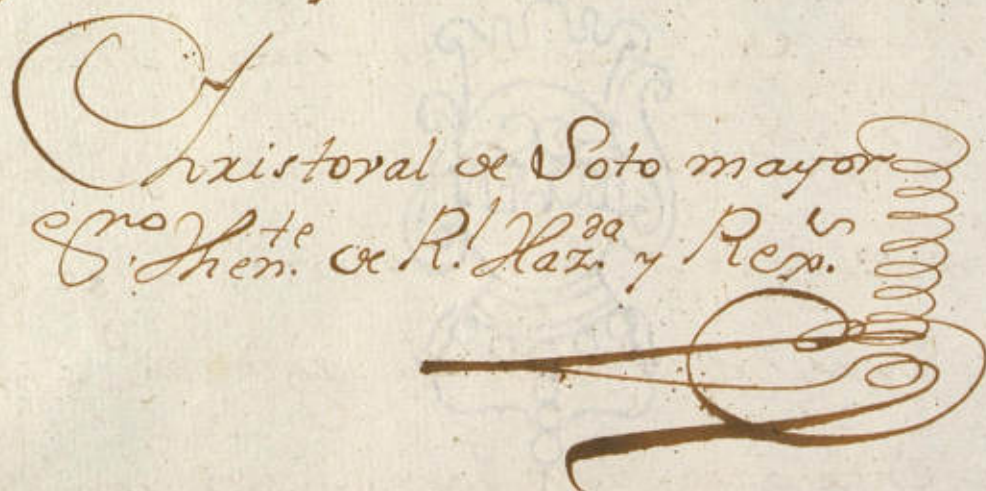 Christoval de Soto mayor
Es.no Then.te de R.l Haz.da y Rex.s